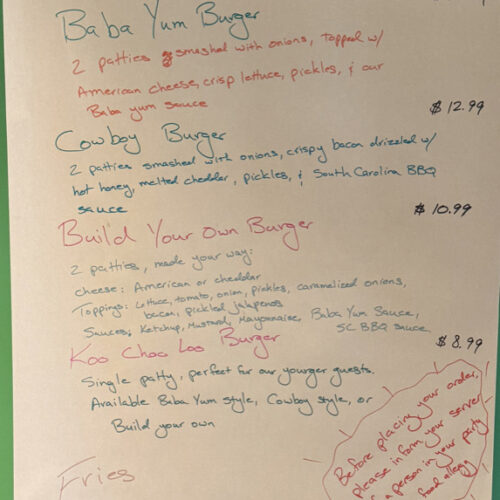 Baba Yum Burger
2 patties smashed with onions, topped w/
American cheese, crisp lettuce, pickles, & our
Baba yum sauce
$12.99
Cowboy Burger
2 patties smashed with onions, crispy bacon drizzled w/
hot honey, melted cheddar, pickles, & South Carolina BBQ
sauce
$10.99
Build Your Own Burger
2 patties, made your way:
cheese: American or cheddar
Toppings: Lettuce, tomato, onion, pickles, caramelized onions,
bacon, pickled jalapenos
Sauces: Ketchup, Mustard, Mayonnaise, Baba Yum Sauce,
SC BBQ Sauce
$8.99
Koo Choo Loo Burger
Single patty, perfect for our younger guests.
Available Baba Yum style, Cowboy style, or
Build your own
Before placing your order,
please inform your server
a person in your party
food allergy
Fries